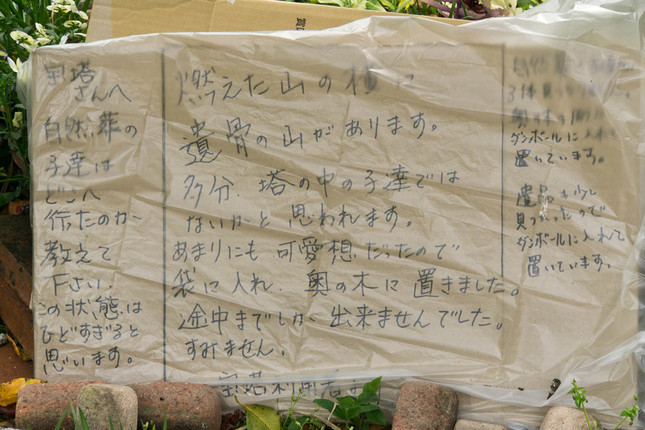 宝塔
さんへ
自然葬の
子達は
どこへ
行たのか
教えて
下さい。
この状態は
ひどすぎると
思います。
燃えた山の横に
遺骨の山があります。
多分、塔の中の子達では
ないかと思われます。
あまりにも可愛想だったので
袋に入れ、奥の木に置きました。
途中までしか出来ませんでした。
すみません。
宝塔利用者
ダンボールに入れて
置いています。
遺品も少し
見つかったので
ダンボールに入れて
置いています。